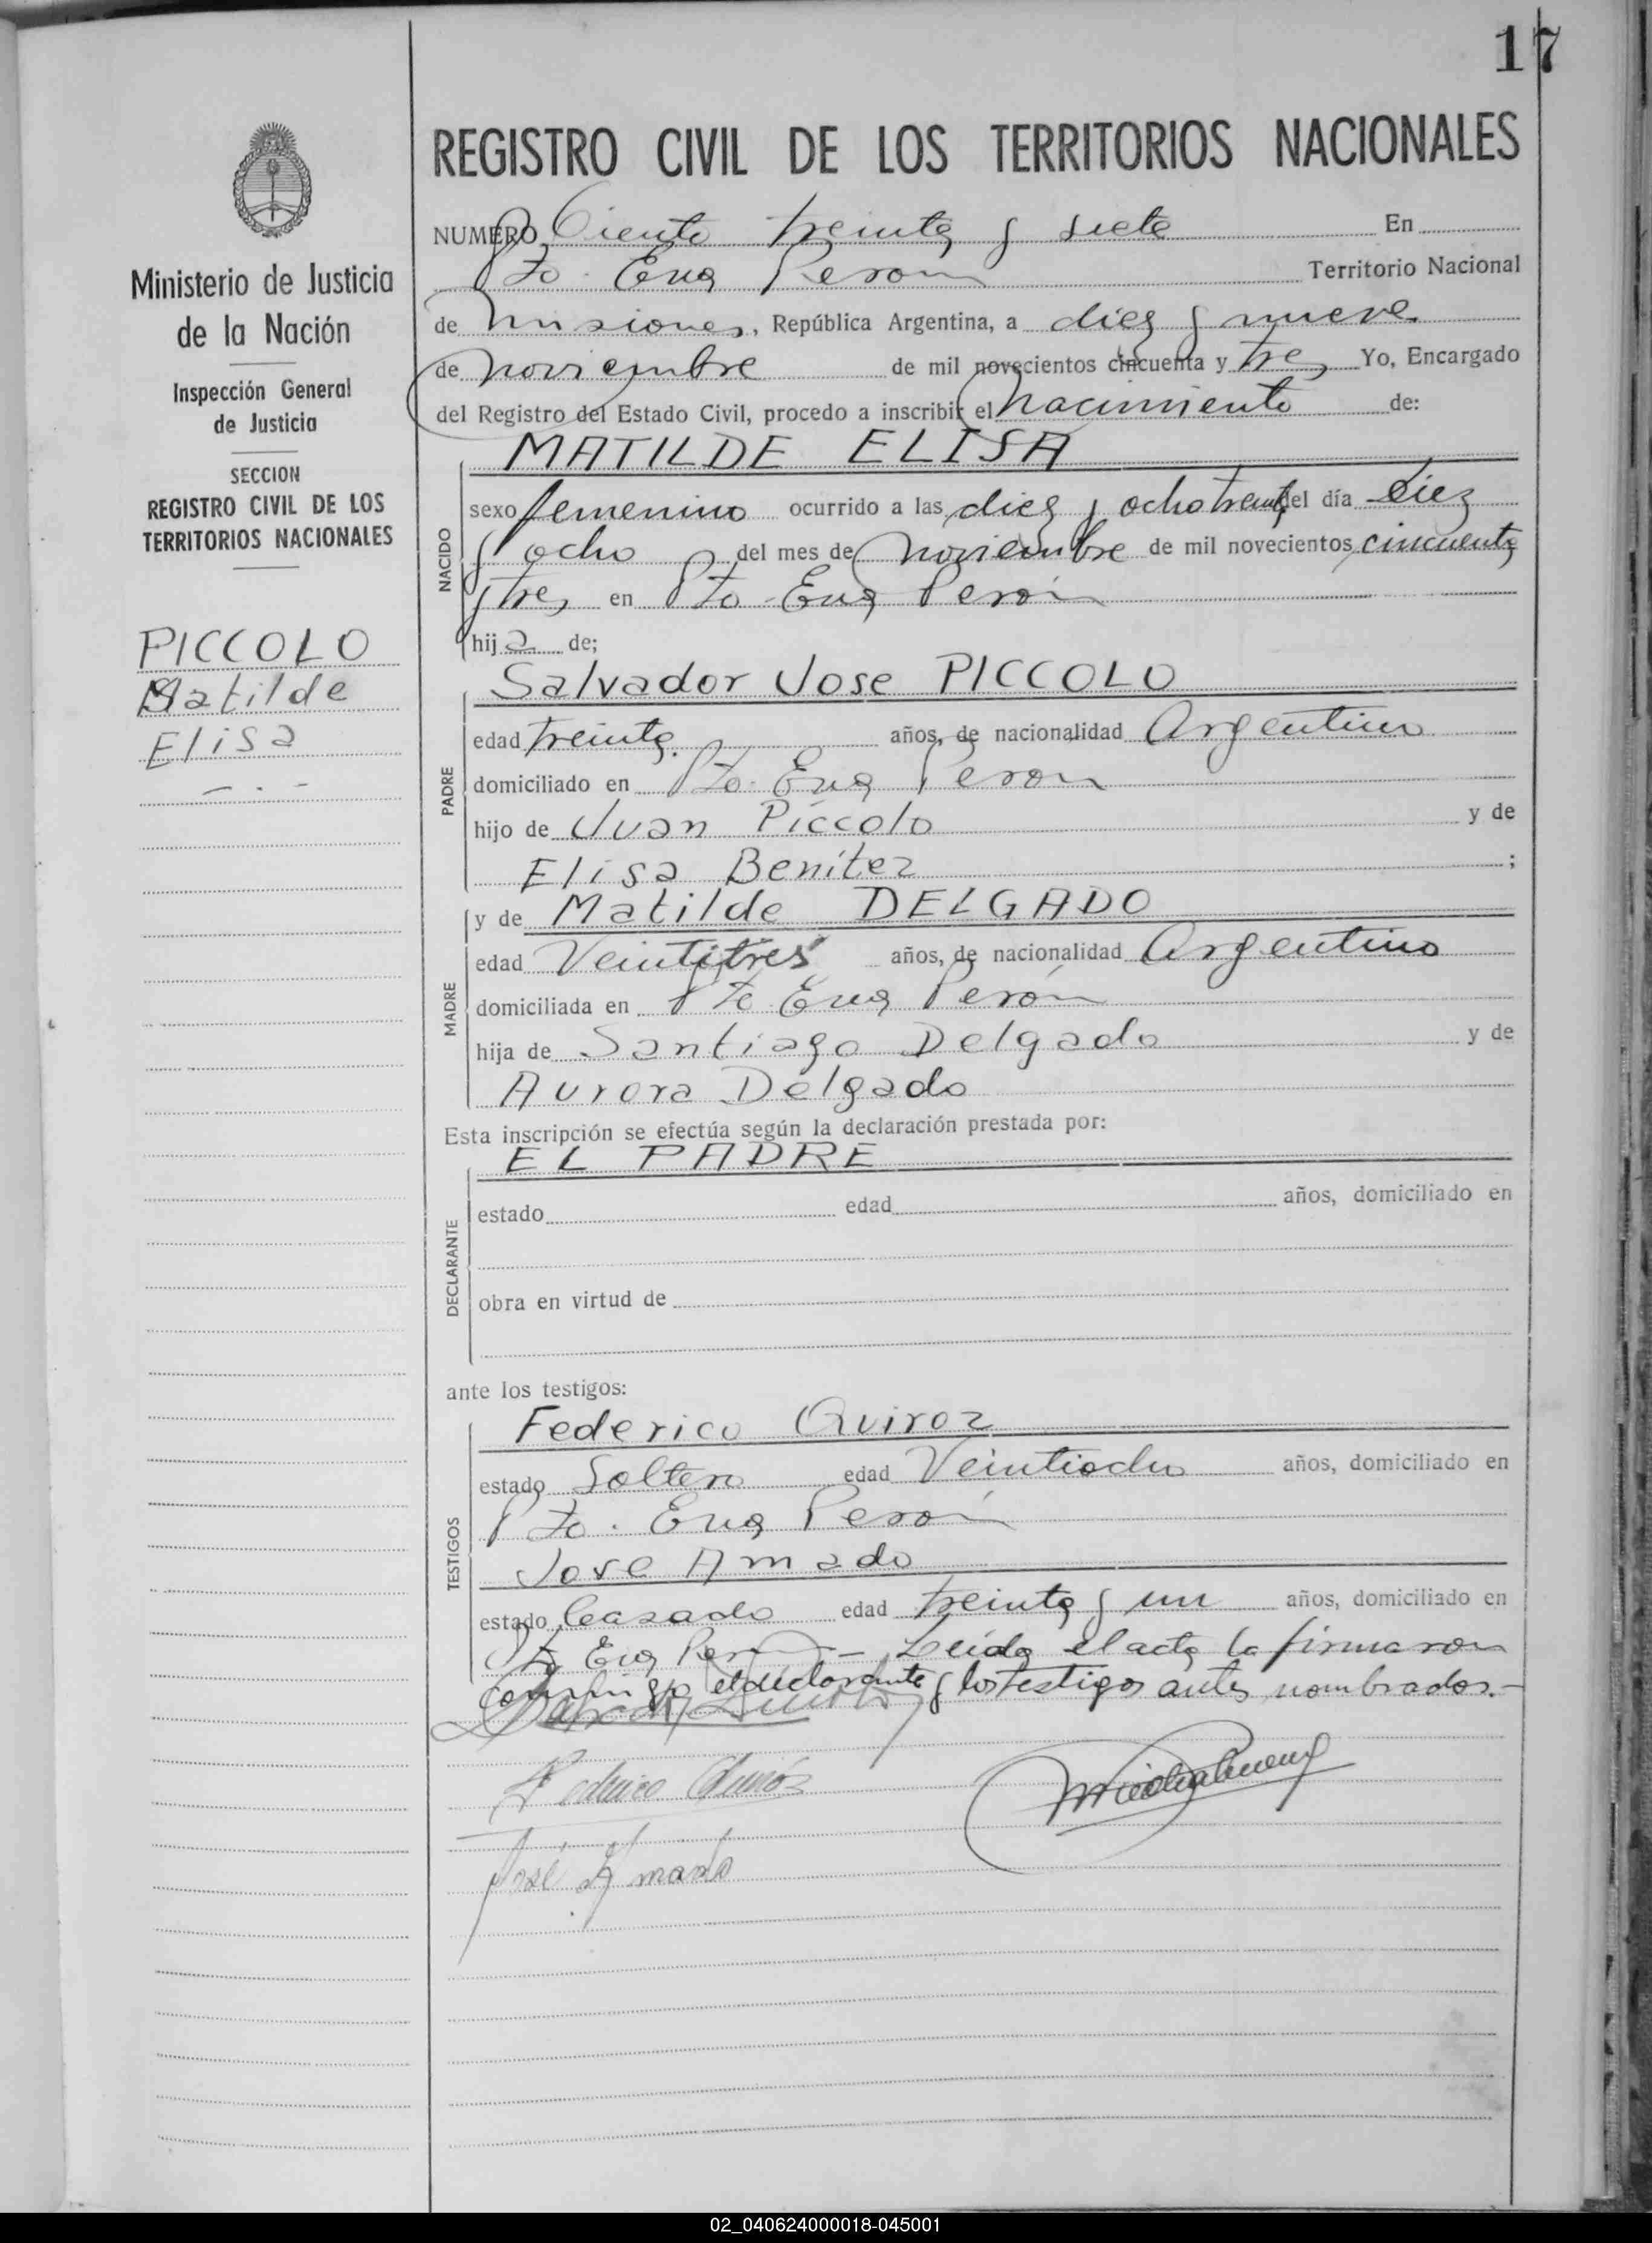 17
REGISTRO CIVIL DE LOS TERRITORIOS NACIONALES
Ministerio de Justicia
de la Nación
Inspección General
de Justicia
SECCION
REGISTRO CIVIL DE LOS
TERRITORIOS NACIONALES
PICCOLO
Matilde
Elisa
NUMERO Ciento treinta y siete En
Pto. Eva Peron Territorio Nacional
de Misiones, República Argentina, a diez y nueve
de noviembre de mil novecientos cincuenta y tres Yo, Encargado
del Registro del Estado Civil, procedo a inscribir el nacimiento de:
NACIDO
MATILDE ELISA
sexo femenino ocurrido a las diez y ocho treinta del día diez
y ocho del mes de noviembre de mil novecientos cincuenta
y tres en Pto. Eva Perón
hija de;
PADRE
Salvador Jose PICCOLO
edad treinta años, de nacionalidad Argentino
domiciliado en Pto. Eva Peron
hijo de Juan Piccolo y de
Elisa Benítez ;
MADRE
y de Matilde DELGADO
edad Veintitres años, de nacionalidad Argentino
domiciliada en Pto Eva Perón
hija de Santiago Delgado y de
Aurora Delgado
Esta inscripción se efectúa según la declaración prestada por:
DECLARANTE
EL PADRE
estado edad años, domiciliado en
obra en virtud de
ante los testigos:
TESTIGOS
Federico Quiroz
estado Soltero edad Veintiocho años, domiciliado en
Pto. Eva Perón
Jose Amado
estado Casado edad treinta y un años, domiciliado en
Pto Eva Peron - Leída el acta la firmaron
conmigo el declarante y los testigos antes nombrados.-
José Amado
02_040624000018-045001